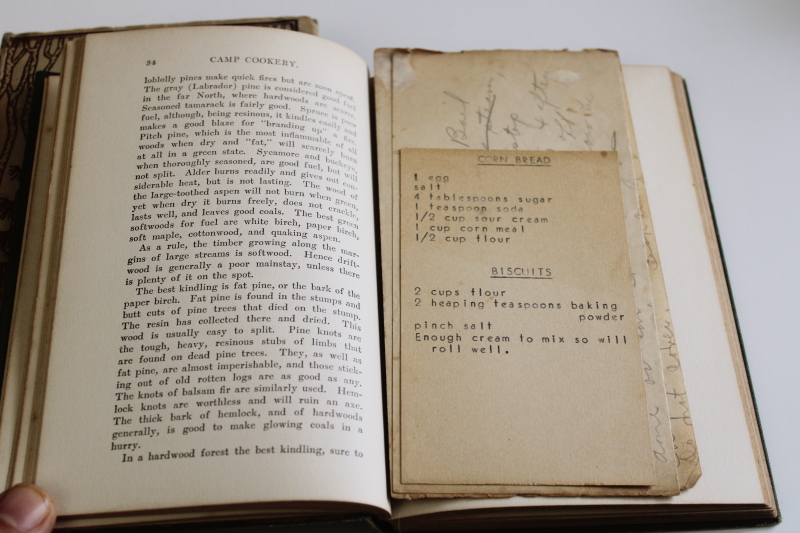 34 CAMP COOKERY.
loblolly pines make quick fires but are soon spent.
The gray (Labrador) pine is considered good fuel
in the far North, where hardwoods are scarce.
Seasoned tamarack is fairly good. Spruce is poor
fuel, although, being resinous, it kindles easily and
makes a good blaze for "branding up" a fire.
Pitch pine, which is the most inflammable of all
woods when dry and "fat," will scarcely burn
at all in a green state. Sycamore and buckeye,
when thoroughly seasoned, are good fuel, but will
not split. Alder burns readily and gives out con-
siderable heat, but is not lasting. The wood of
the large-toothed aspen will not burn when green,
yet when dry it burns freely, does not crackle,
lasts well, and leaves good coals. The best green
softwoods for fuel are white birch, paper birch,
soft maple, cottonwood, and quaking aspen.
As a rule, the timber growing along the mar-
gins of large streams is softwood. Hence drift-
wood is generally a poor mainstay, unless there
is plenty of it on the spot.
The best kindling is fat pine, or the bark of the
paper birch. Fat pine is found in the stumps and
butt cuts of pine trees that died on the stump.
The resin has collected there and dried. This
wood is usually easy to split. Pine knots are
the tough, heavy, resinous stubs of limbs that
are found on dead pine trees. They, as well as
fat pine, are almost imperishable, and those stick-
ing out of old rotten logs are as good as any.
The knots of balsam fir are similarly used. Hem-
lock knots are worthless and will ruin an axe.
The thick bark of hemlock, and of hardwoods
generally, is good to make glowing coals in a
hurry.
In a hardwood forest the best kindling, sure to
Boil
stop
CORN BREAD
1 egg
salt
4 tablespoons sugar
1 teaspoon soda
1/2 cup sour cream
1 cup corn meal
1/2 cup flour
BISCUITS
2 cups flour
2 heaping teaspoons baking
powder
pinch salt
Enough cream to mix so will
roll well.